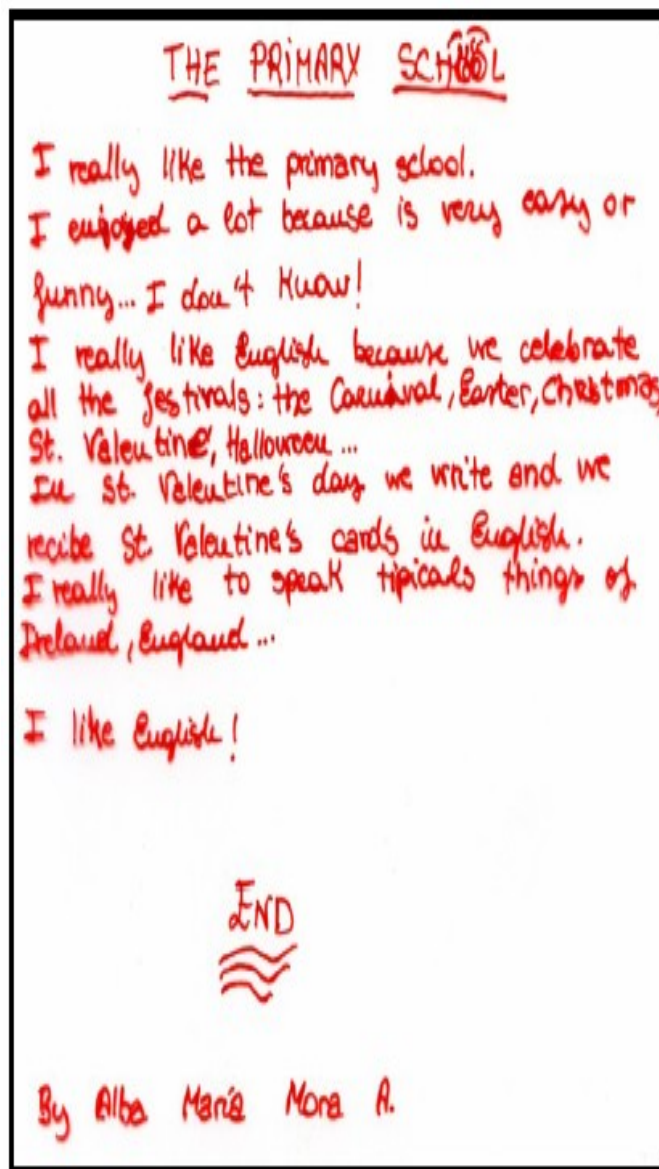 THE PRIMARY SCHOOL
I really like the primary school.
I enjoyed a lot because is very easy or
funny... I don't know!
I really like English because we celebrate
all the festivals: the Carnaval, Easter, Christmas,
St. Valentine, Halloween...
In St. Valentine's day we write and we
recibe St. Valentine's cards in English.
I really like to speak tipicals things of
Ireland, England...
I like English!
END
By Alba María Mora A.